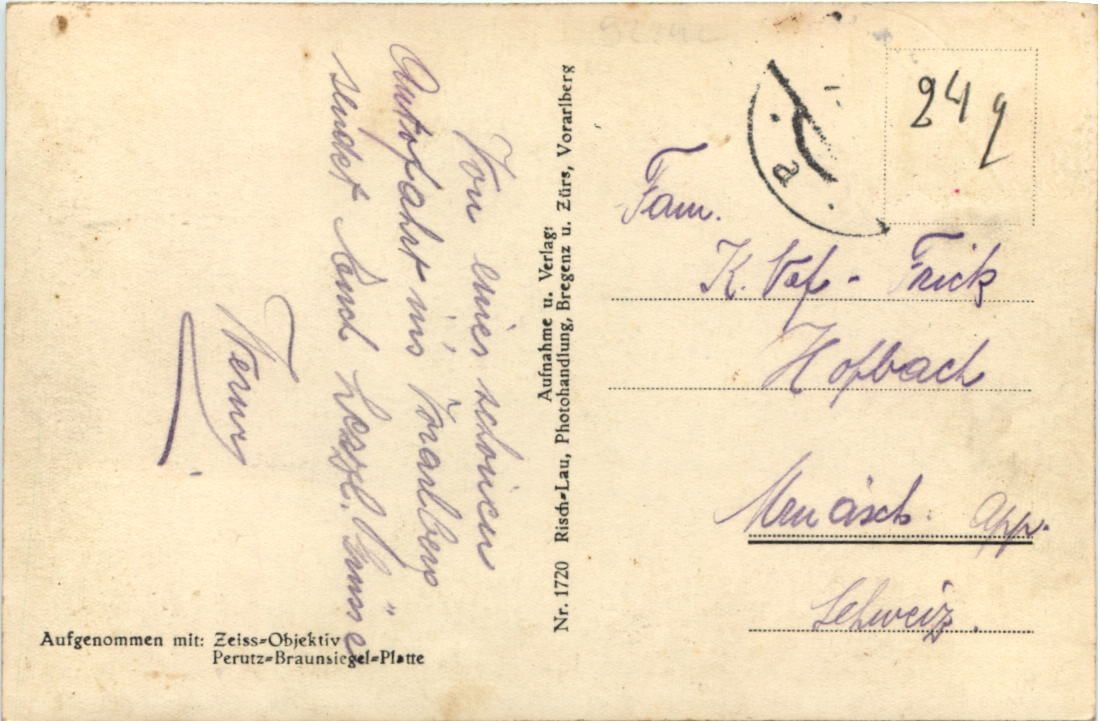 Von einer schönen
Autofahrt ins Vorarlberg
sendet Euch herzl. Grüsse
Werner
Aufgenommen mit: Zeiss=Objektiv
Perutz=Braunsiegel=Platte
Aufnahme u. Verlag:
Nr. 1720 Risch=Lau, Photohandlung, Bregenz u. Zürs, Vorarlberg
24 g
Fam.
K. - Frick
Hofbach
App.
Schweiz.